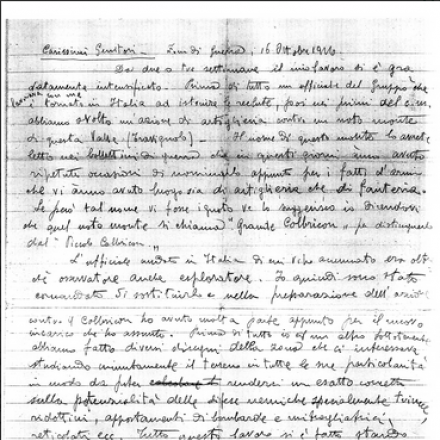 Carissimi Genitori - Zona di guerra, 16 Ottobre 1916
Da due o tre settimane il mio lavoro si è gra
datamente intensificato. Prima di tutto un ufficiale del Gruppo che
è tornato in Italia ad istruire le reclute, poi nei primi del c.m.
abbiamo svolto un'azione di artiglieria contro un noto monte
di questa Valle (Travignolo). Il nome di questo monte lo avrete
letto nei bollettini di guerra che in questi giorni ànno avuto
ripetute occasioni di nominarlo appunto per i fatti d'armi
che vi ànno avuto luogo sia di artiglieria che di fanteria.
Se però tal nome vi fosse ignoto ve lo suggerisco io dicendovi
che quel noto monte si chiama "Grande Colbricon" per distinguerlo
dal "Piccolo Colbricon".
L'ufficiale andato in Italia di cui vi ho accennato era oltre
che osservatore anche esploratore. Io quindi sono stato
comandato di sostituirlo e nella preparazione dell'azione
contro il Colbricon ho avuto molta parte appunto per il nuovo
incarico che ho assunto. Prima di tutto io ed un altro sottotenente
abbiamo fatto diversi disegni della zona che ci interessava
studiando minutamente il terreno in tutte le sue particolarità
in modo da poter renderci un esatto concetto
sulla potenzialità delle difese nemiche specialmente trincee,
ridottini, appostamenti di bombarde e mitragliatrici,
reticolati ecc. Tutto questo lavoro si è fatto stando